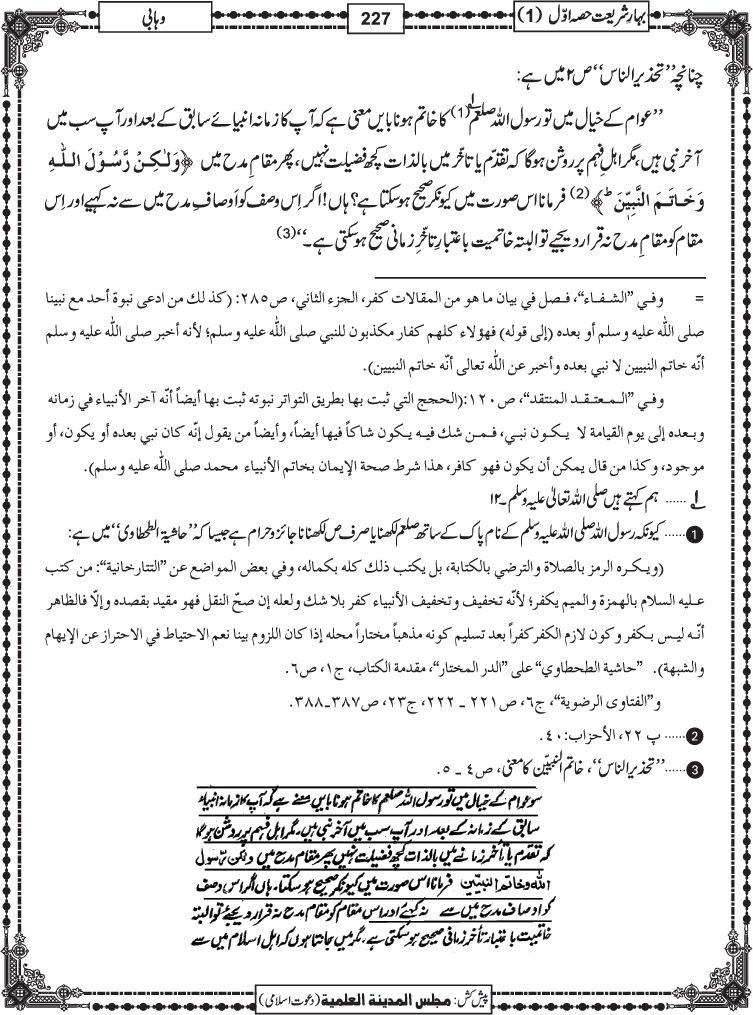 بہارِ شریعت حصہ اوّل (1)
227
وہابی
چنانچہ ”تحذیر الناس“ ص۲ میں ہے:
”عوام کے خیال میں تو رسول اللہ صلعم (1) کا خاتم ہونا بایں معنی ہے کہ آپ کا زمانہ انبیائے سابق کے بعد اور آپ سب میں
آخر نبی ہیں، مگر اہلِ فہم پر روشن ہوگا کہ تقدّم یا تأخّر میں بالذات کچھ فضیلت نہیں، پھر مقامِ مدح میں ﴿وَلٰـکِنْ رَّسُوْلَ اللّٰہِ
وَخَاتَمَ النَّبِیّٖنَ ط﴾ (2) فرمانا اس صورت میں کیونکر صحیح ہوسکتا ہے؟ ہاں! اگر اِس وصف کو اَوصافِ مدح میں سے نہ کہیے اور اِس
مقام کو مقامِ مدح نہ قرار دیجیے تو البتہ خاتمیت باعتبارِ تأخّرِ زمانی صحیح ہوسکتی ہے۔“ (3)
= وفي ”الشـفـاء“، فـصل في بيان ما هو من المقالات كفر، الجزء الثاني، ص۲۸۵: (كذلك من ادعى نبوة أحد مع نبينا
صلى الله عليه وسلم أو بعده (إلى قوله) فهؤلاء كلهم كفار مكذبون للنبي صلى الله عليه وسلم؛ لأنه أخبر صلى الله عليه وسلم
أنّه خاتم النبيين لا نبي بعده وأخبر عن الله تعالى أنّه خاتم النبيين).
وفـي ”الـمـعتـقـد المنتقد“، ص۱۲۰: (الحجج التي ثبت بها بطريق التواتر نبوته ثبت بها أيضاً أنّه آخر الأنبياء في زمانه
وبـعده إلى يوم القيامة لا يـكـون نبـي، فـمـن شك فيـه يـكـون شاكاً فيها أيضاً، وأيضاً من يقول إنّه كان نبي بعده أو يكون، أو
موجود، وكذا من قال يمكن أن يكون فهو كافر، هذا شرط صحة الإيمان بخاتم الأنبياء محمد صلى الله عليه وسلم).
۱ ...... ہم کہتے ہیں صلی اللہ تعالیٰ علیہ وسلم۔ ۱۲
1 ...... کیونکہ رسول اللہ صلی اللہ علیہ وسلم کے نامِ پاک کے ساتھ صلعم لکھنا یا صرف ص لکھنا ناجائز و حرام ہے جیسا کہ ”حاشیۃ الطحطاوی“ میں ہے:
(ويـكـره الرمز بالصلاة والترضي بالكتابة، بل يكتب ذلك كله بكماله، وفي بعض المواضع عن ”التتارخانية“: من كتب
عـليه السلام بالهمزة والميم يكفر؛ لأنّه تخفيف وتخفيف الأنبياء كفر بلا شك ولعله إن صحّ النقل فهو مقيد بقصده وإلّا فالظاهر
أنّـه ليس بـكـفر وكون لازم الكفر كفراً بعد تسليم كونه مذهباً مختاراً محله إذا كان اللزوم بينا نعم الاحتياط في الاحتراز عن الإيهام
والشبهة). ”حاشية الطحطاوي“ على ”الدر المختار“، مقدمة الكتاب، ج۱، ص۶.
و”الفتاوى الرضوية“، ج۶، ص۲۲۱ ـ ۲۲۲، ج۲۳، ص۳۸۷ـ۳۸۸.
2 ...... پ ۲۲، الأحزاب: ۴۰.
3 ...... ”تحذیر الناس“، خاتم النبیّین کا معنی، ص۴ ـ ۵.
سو عوام کے خیال میں تو رسول اللہ صلعم کا خاتم ہونا بایں معنے ہے کہ آپ کا زمانہ انبیاء
سابق کے زمانہ کے بعد اور آپ سب میں آخر نبی ہیں۔ مگر اہل فہم پر روشن ہوگا
کہ تقدم یا تأخر زمانے میں بالذات کچھ فضیلت نہیں پھر مقام مدح میں ولکن رسول
اللہ وخاتم النبیین فرمانا اس صورت میں کیونکر صحیح ہوسکتا۔ ہاں اگر اس وصف
کو اوصاف مدح میں سے نہ کہئے اور اس مقام کو مقام مدح نہ قرار دیجئے تو البتہ
خاتمیت باعتبار تأخر زمانی صحیح ہوسکتی ہے۔ مگر میں جانتا ہوں کہ اہل اسلام میں سے
پیش کش: مجلس المدینۃ العلمیۃ (دعوتِ اسلامی)